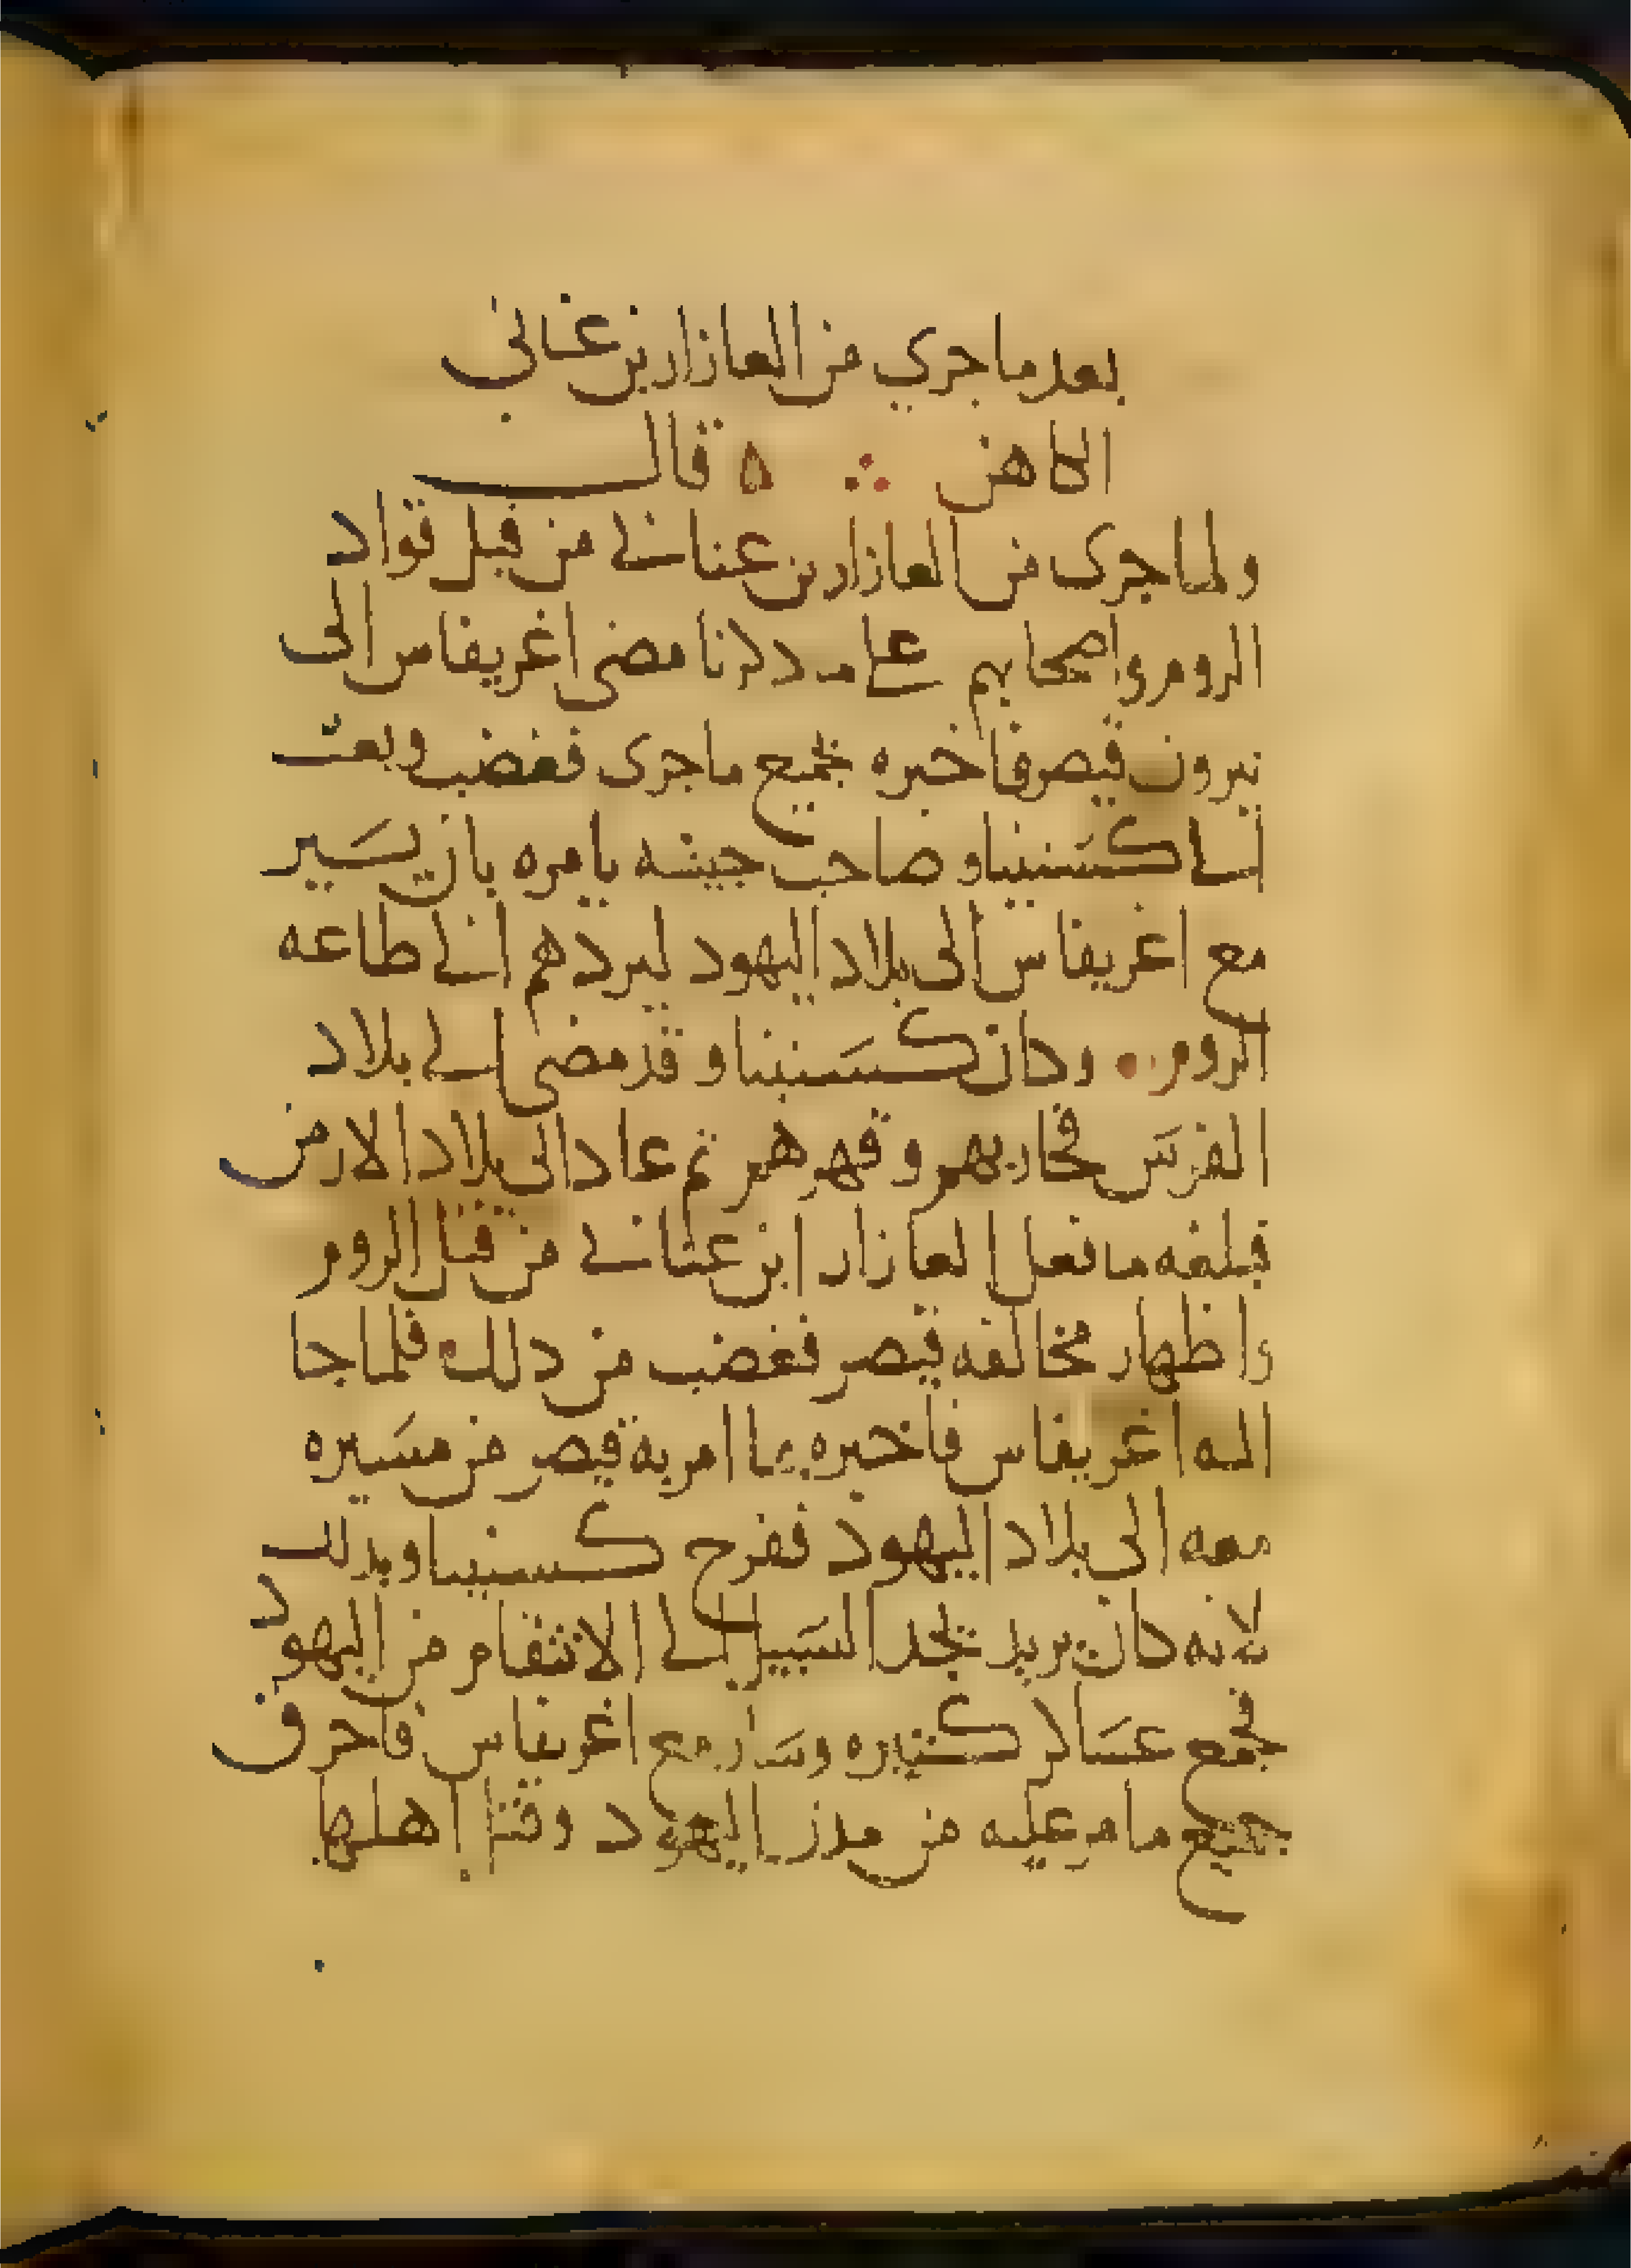 بعد ما جري من العازار بن عناني
الكاهن ∴ ه قال
ولما جرى من العازار بن عناني من قبل قواد
الروم واصحابهم على ما ذكرنا مضى اغريفاس الى
نيرون قيصر فاخبره بجميع ما جرى فغضب وبعث
الى كسنيناو صاحب جيشه يامره بان يسير
مع اغريفاس الى بلاد اليهود ليردهم الى طاعه
الروم وكان كسنيناو قد مضى الى بلاد
الفرس فحاربهم وقهرهم ثم عاد الى بلاد الارمن
فبلغه ما فعل العازار ابن عناني من قتل الروم
واظهار مخالفه قيصر فغضب من ذلك فلما جا
اليه اغريفاس فاخبره بما امر به قيصر من مسيره
معه الى بلاد اليهود ففرح كسنيناو بذلك
لانه كان يريد يجد السبيل الى الانتقام من اليهود
فجمع عساكر كثيره وسار مع اغريفاس فاحرق
جميع ما مر عليه من مدن اليهود وقتل اهلها